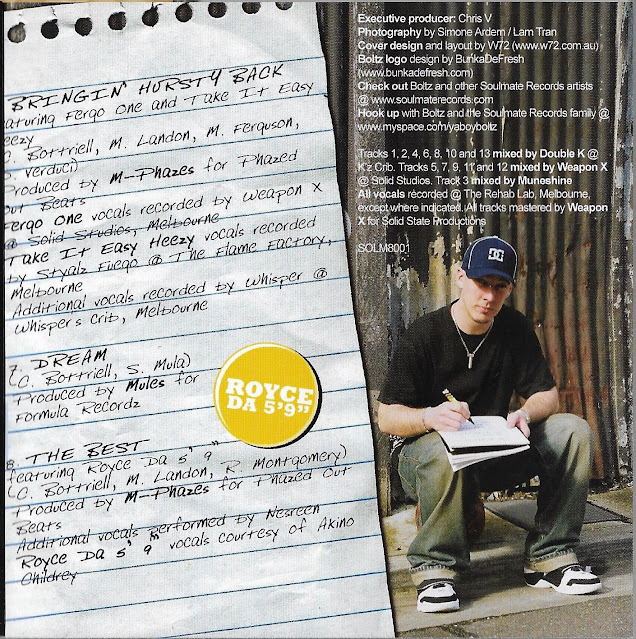 BRINGIN' HURSTY BACK
aturing Fergo One and Take It Easy
eezy
C. Bottriell, M. Landon, M. Ferguson,
Verduci)
Produced by M-Phazes for Phazed
Out Beats
Fergo One vocals recorded by Weapon X
@ Solid Studios, Melbourne
Take It Easy Heezy vocals recorded
by Styalz Fuego @ The Flame Factory,
Melbourne
Additional vocals recorded by Whisper @
Whisper's Crib, Melbourne
7. DREAM
(C. Bottriell, S. Mula)
Produced by Mules for
Formula Recordz
8. THE BEST
featuring Royce Da 5' 9"
(C. Bottriell, M. Landon, R. Montgomery)
Produced by M-Phazes for Phazed Out
Beats
Additional vocals performed by Nesreen
Royce Da 5' 9" vocals courtesy of Akino
Childrey
ROYCE
DA 5'9"
Executive producer: Chris V
Photography by Simone Ardern / Lam Tran
Cover design and layout by W72 (www.w72.com.au)
Boltz logo design by BunkaDeFresh
(www.bunkadefresh.com)
Check out Boltz and other Soulmate Records artists
@ www.soulmaterecords.com
Hook up with Boltz and the Soulmate Records family @
www.myspace.com/yaboyboltz
Tracks 1, 2, 4, 6, 8, 10 and 13 mixed by Double K @
K'z Crib. Tracks 5, 7, 9, 11 and 12 mixed by Weapon X
@ Solid Studios. Track 3 mixed by Muneshine
All vocals recorded @ The Rehab Lab, Melbourne,
except where indicated. All tracks mastered by Weapon
X for Solid State Productions
SOLM8001
DC